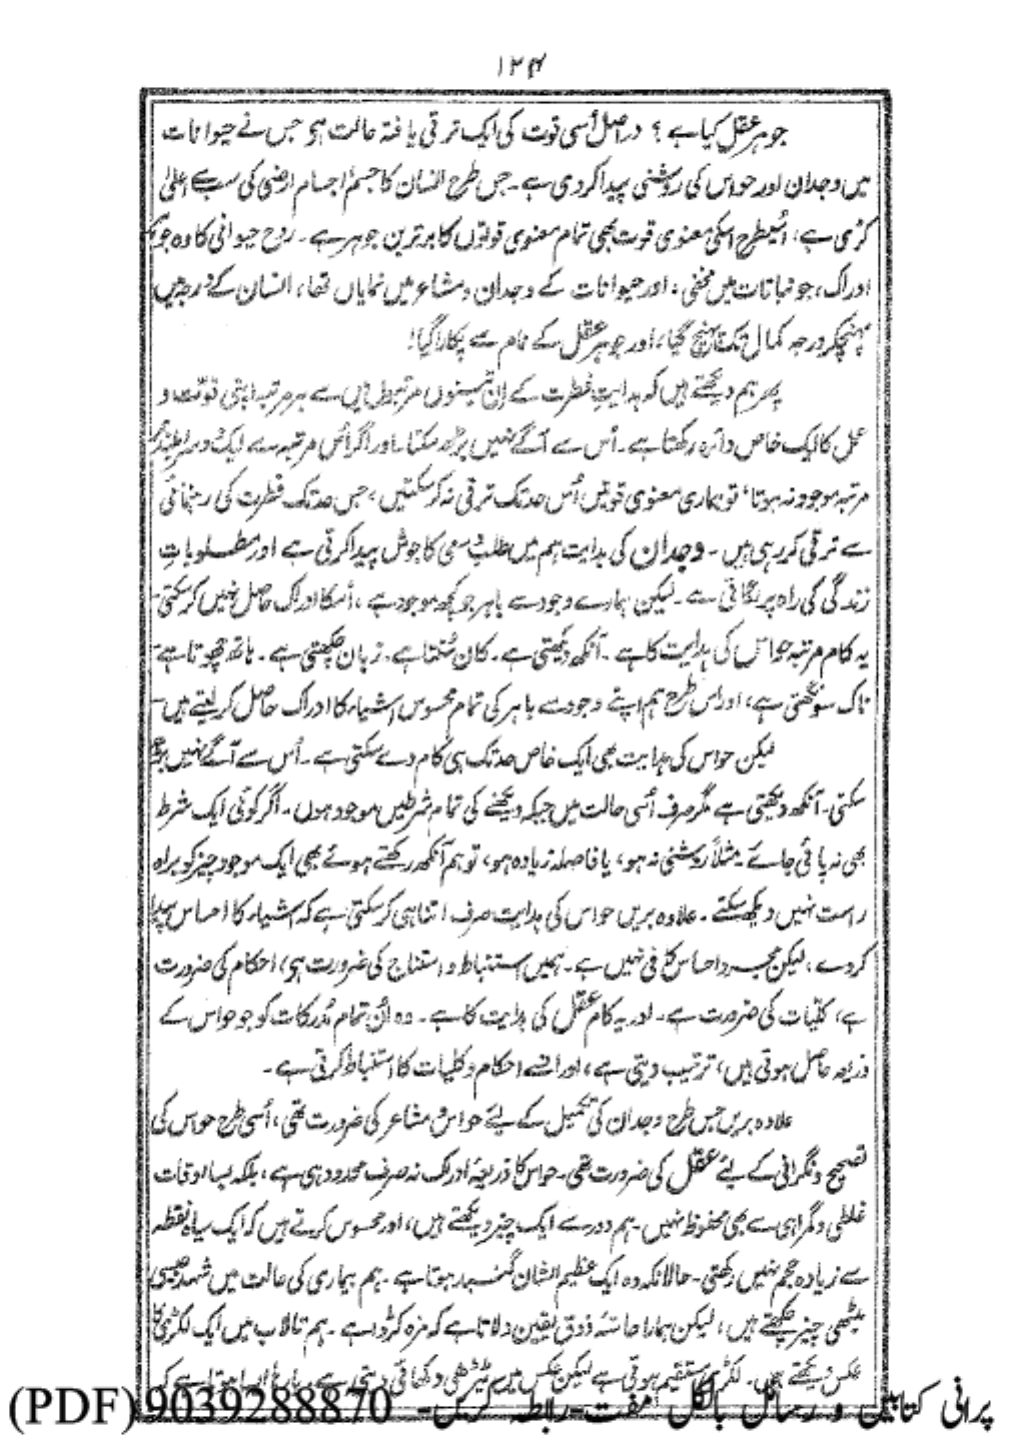 ۱۲۴
جوہر عقل کیا ہے؟ دراصل اُسی قوت کی ایک ترقی یافتہ حالت ہو جس نے حیوانات
میں وجدان اور حواس کی روشنی پیدا کردی ہے۔ جس طرح انسان کا جسم اجسام ارضی کی سب سے اعلیٰ
کڑی ہے، اُسیطرح اسکی معنوی قوت بھی تمام معنوی قوتوں کا برترین جوہر ہے۔ روح حیوانی کا وہ جوہر
ادراک، جو نباتات میں مخفی، اور حیوانات کے وجدان و مشاعر میں نمایاں تھا، انسان کے درجہ میں
پہنچکر درجہ کمال تک پہنچ گیا، اور جوہر عقل کے نام سے پکارا گیا!
پھر ہم دیکھتے ہیں کہ ہدایت فطرت کے اِن تینوں مرتبوں میں سے ہر مرتبہ اپنی قوت و
عمل کا ایک خاص دائرہ رکھتا ہے۔ اُس سے آگے نہیں بڑھ سکتا۔ اور اگر اُس مرتبہ سے ایک دوسرا بلند تر
مرتبہ موجود نہ ہوتا، تو ہماری معنوی قوتیں اُس حد تک ترقی نہ کرسکتیں، جس حد تک فطرت کی رہنمائی
سے ترقی کررہی ہیں۔ وجدان کی ہدایت ہم میں طلب و سعی کا جوش پیدا کرتی ہے اور مطلوباتِ
زندگی کی راہ پر لگاتی ہے۔ لیکن ہمارے وجود سے باہر جو کچھ موجود ہے، اُسکا ادراک حاصل نہیں کرسکتی۔
یہ کام مرتبہ حواس کی ہدایت کا ہے۔ آنکھ دیکھتی ہے۔ کان سُنتا ہے۔ زبان چکھتی ہے۔ ہاتھ چھوتا ہے۔
ناک سونگھتی ہے، اور اس طرح ہم اپنے وجود سے باہر کی تمام محسوس اشیاء کا ادراک حاصل کرلیتے ہیں۔
لیکن حواس کی ہدایت بھی ایک خاص حد تک ہی کام دے سکتی ہے۔ اُس سے آگے نہیں بڑھ
سکتی۔ آنکھ دیکھتی ہے مگر صرف اُسی حالت میں جبکہ دیکھنے کی تمام شرطیں موجود ہوں۔ اگر کوئی ایک شرط
بھی نہ پائی جائے۔ مثلاً روشنی نہ ہو، یا فاصلہ زیادہ ہو، تو ہم آنکھ رکھتے ہوئے بھی ایک موجود چیز کو براہ
راست نہیں دیکھ سکتے۔ علاوہ بریں حواس کی ہدایت صرف اتنا ہی کرسکتی ہے کہ اشیاء کا احساس پیدا
کردے، لیکن مجرد احساس کافی نہیں ہے۔ ہمیں استنباط و استنتاج کی ضرورت ہی، احکام کی ضرورت
ہے، کلیات کی ضرورت ہے۔ اور یہ کام عقل کی ہدایت کا ہے۔ وہ اُن تمام مُدرکات کو جو حواس کے
ذریعہ حاصل ہوتی ہیں، ترتیب دیتی ہے، اور اُنسے احکام و کلیات کا استنباط کرتی ہے۔
علاوہ بریں جس طرح وجدان کی تکمیل کے لیئے حواس و مشاعر کی ضرورت تھی، اُسی طرح حواس کی
تصحیح و نگرانی کے لیے عقل کی ضرورت تھی۔ حواس کا ذریعۂ ادراک نہ صرف محدود ہی ہے، بلکہ بسا اوقات
غلطی و گمراہی سے بھی محفوظ نہیں۔ ہم دور سے ایک چیز دیکھتے ہیں، اور محسوس کرتے ہیں کہ ایک سیاہ نقطہ
سے زیادہ حجم نہیں رکھتی۔ حالانکہ وہ ایک عظیم الشان گنبد ہوتا ہے۔ ہم بیماری کی حالت میں شہد جیسی
میٹھی چیز چکھتے ہیں، لیکن ہمارا حاسّۂ ذوق یقین دلاتا ہے کہ مزہ کڑوا ہے۔ ہم تالاب میں ایک لکڑی کا
عکس دیکھتے ہیں۔ لکڑی مستقیم ہوتی ہے لیکن عکس میں ٹیڑھی دکھائی دیتی ہے۔ بارہا ایسا ہوتا ہے کہ
پرانی کتابیں و رسائل بالکل مفت-رابطہ کریں- 9039288870 (PDF)